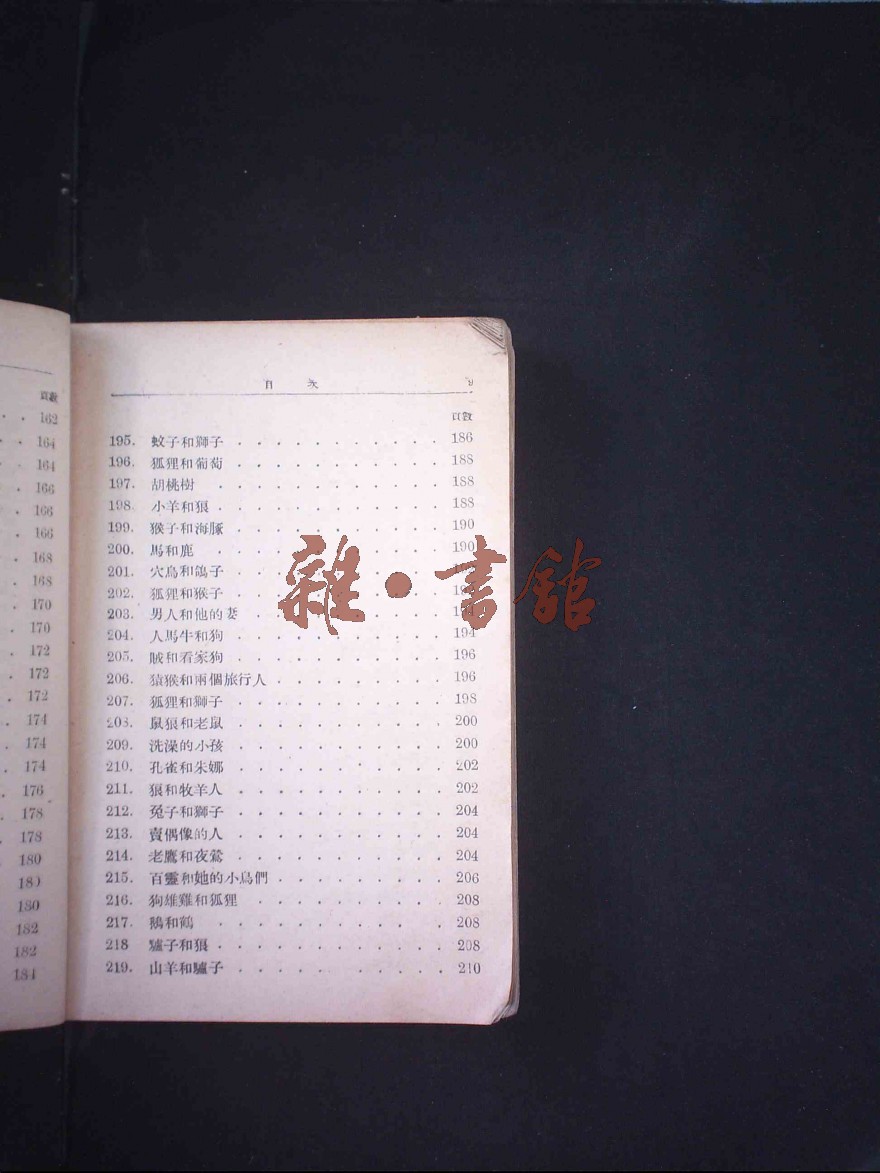 頁數
162
164
164
166
166
166
168
168
170
170
172
172
172
174
174
174
176
178
178
180
180
180
182
182
184
目 次 9
頁數
195. 蚊子和獅子 . . . . . . . . . . . 186
196. 狐狸和葡萄 . . . . . . . . . . . 188
197. 胡桃樹 . . . . . . . . . . . . 188
198. 小羊和狼 . . . . . . . . . . . 188
199. 猴子和海豚 . . . . . . . . . . . 190
200. 馬和鹿 . . . . . . . . . . . . 190
201. 穴鳥和鴿子 . . . . . . . . . . .
202. 狐狸和猴子 . . . . . . . . . . .
203. 男人和他的妻 . . . . . . . . . . .
204. 人馬牛和狗 . . . . . . . . . . . 194
205. 賊和看家狗 . . . . . . . . . . . 196
206. 猿猴和兩個旅行人 . . . . . . . . . 196
207. 狐狸和獅子 . . . . . . . . . . . 198
208. 鼠狼和老鼠 . . . . . . . . . . . 200
209. 洗澡的小孩 . . . . . . . . . . . 200
210. 孔雀和朱娜 . . . . . . . . . . . 202
211. 狼和牧羊人 . . . . . . . . . . . 202
212. 兔子和獅子 . . . . . . . . . . . 204
213. 賣偶像的人 . . . . . . . . . . . 204
214. 老鷹和夜鶯 . . . . . . . . . . . 204
215. 百靈和她的小鳥們 . . . . . . . . . 206
216. 狗雄雞和狐狸 . . . . . . . . . . . 208
217. 鵝和鶴 . . . . . . . . . . . . 208
218 驢子和狼 . . . . . . . . . . . . 208
219. 山羊和驢子 . . . . . . . . . . . 210
雜·書館